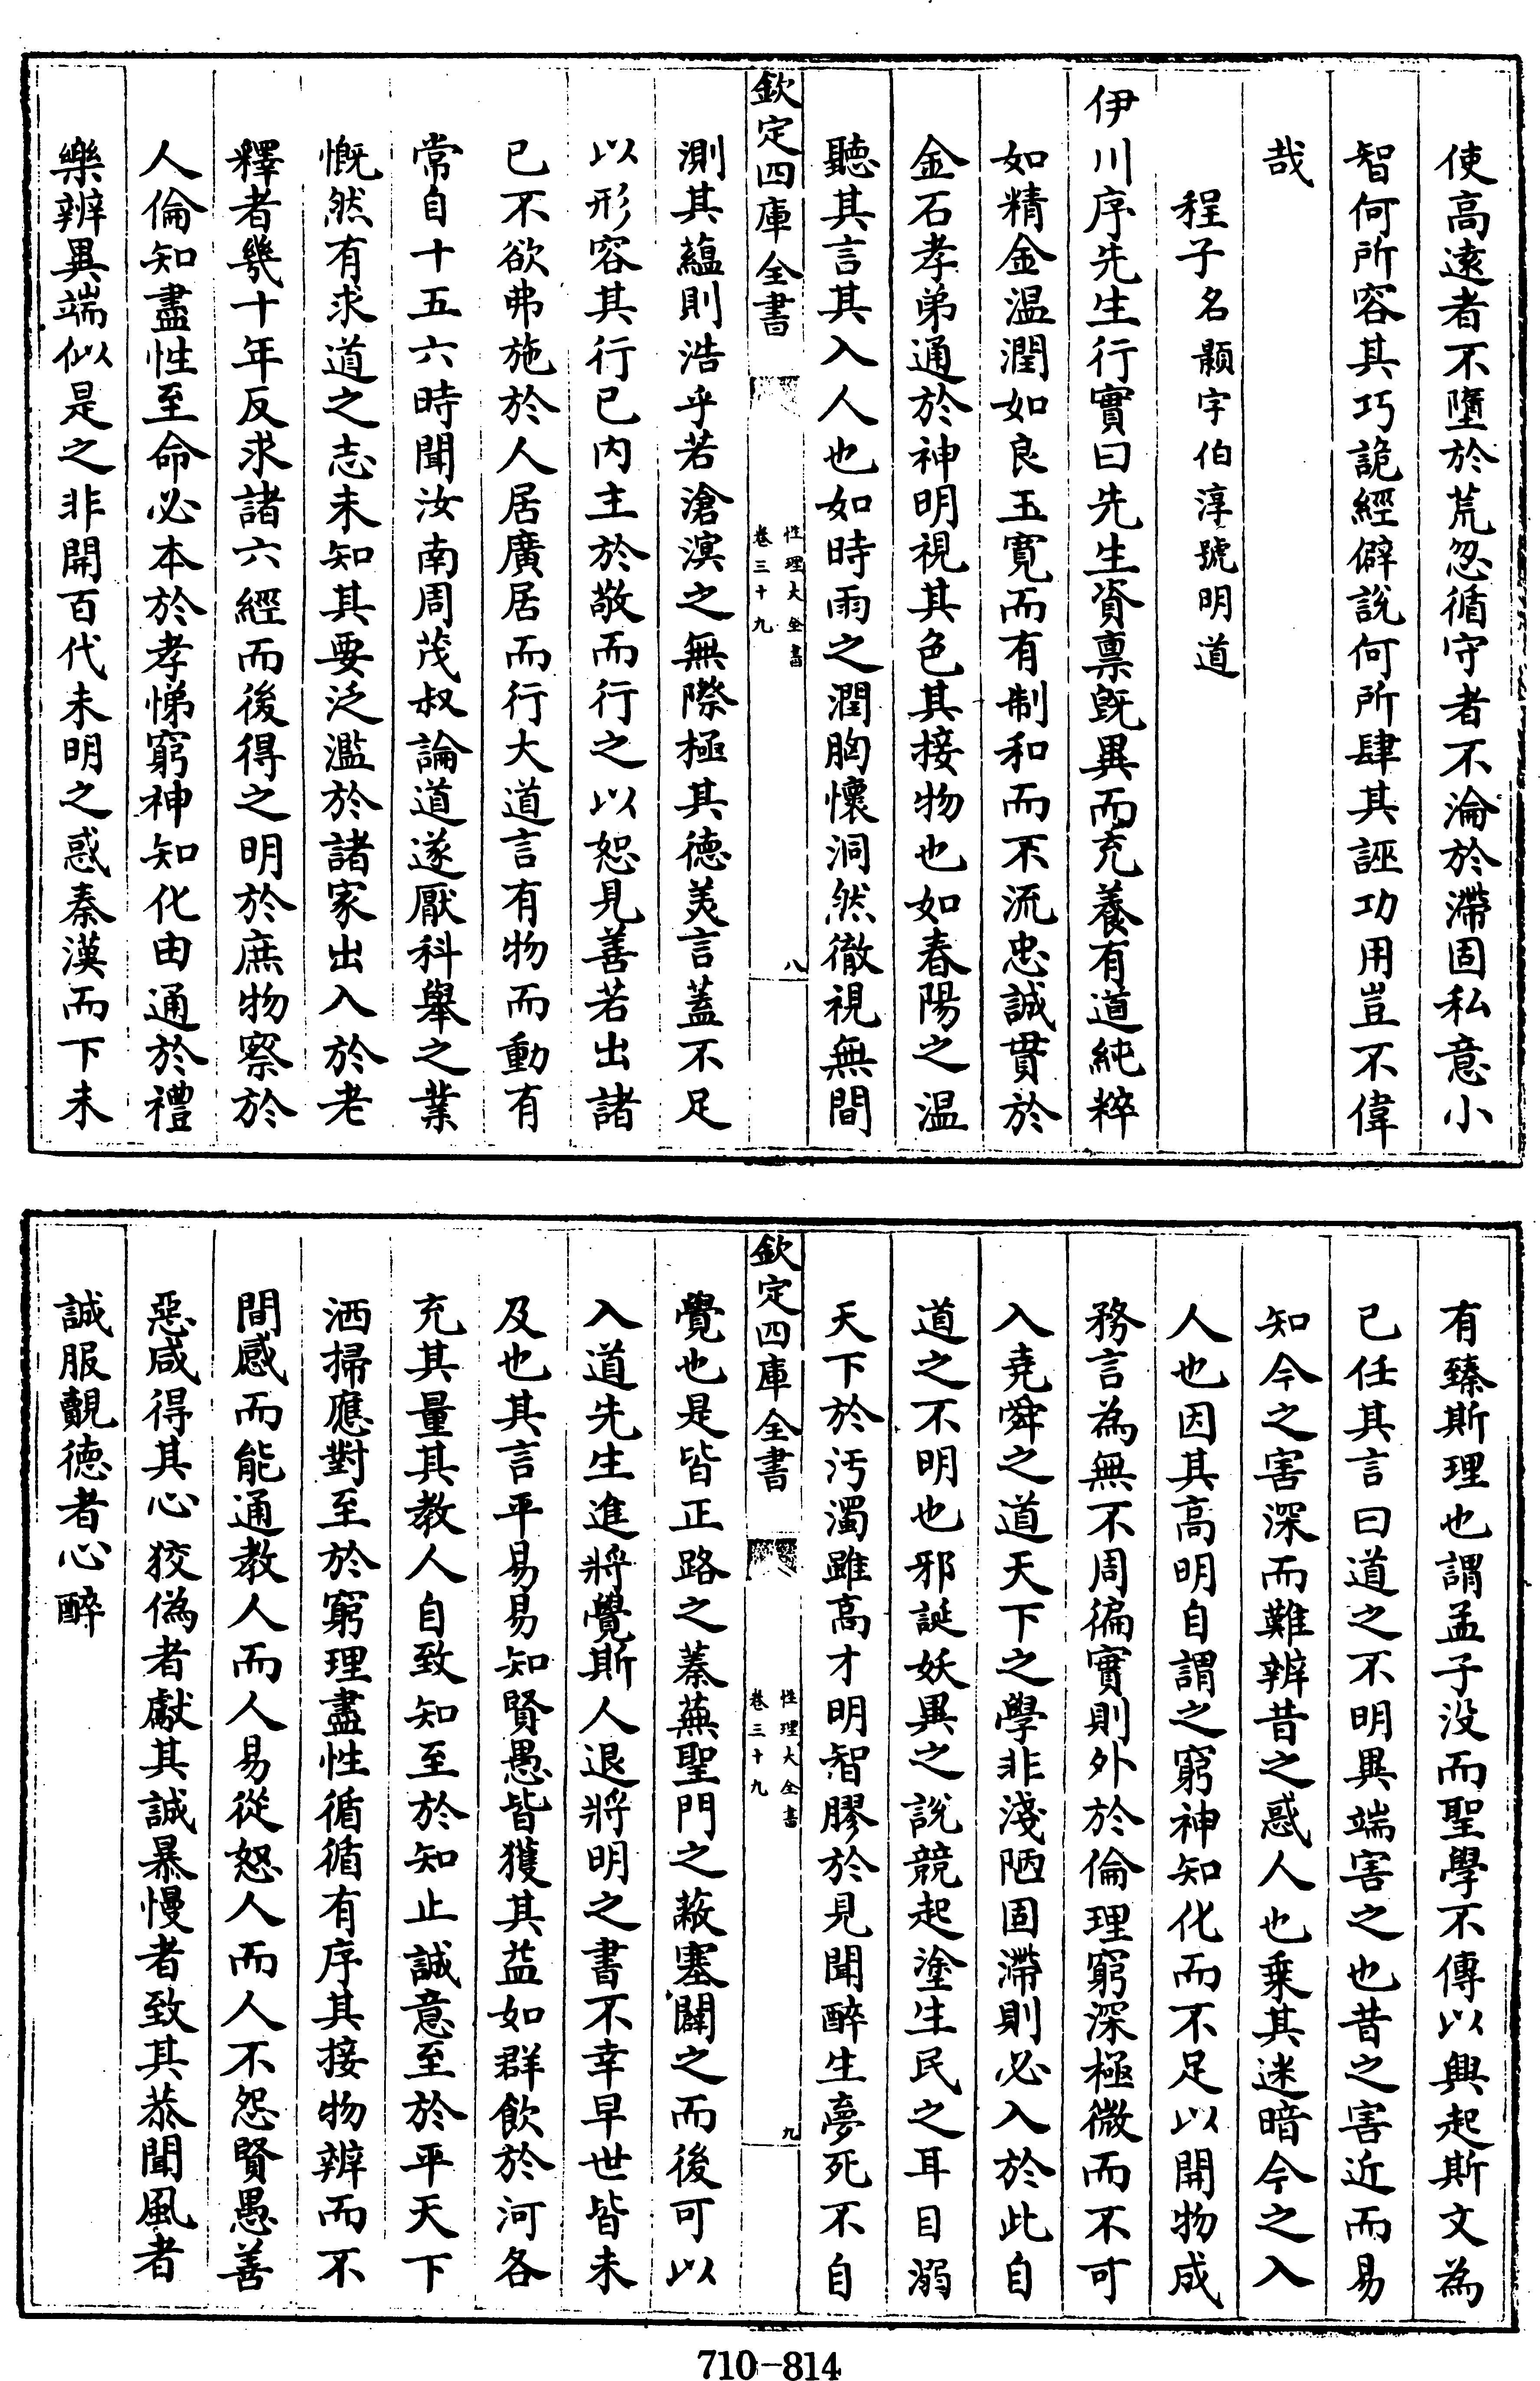 使高遠者不墮於荒忽循守者不淪於滯固私意小
智何所容其巧詭經僻說何所肆其誣功用豈不偉
哉
程子名顥字伯淳號明道
伊川序先生行實曰先生資禀旣異而充養有道純粹
如精金温潤如良玉寛而有制和而不流忠誠貫於
金石孝弟通於神明視其色其接物也如春陽之温
聽其言其入人也如時雨之潤胸懷洞然徹視無間
欽定四庫全書
性理大全書
卷三十九
八
測其蘊則浩乎若滄溟之無際極其德美言蓋不足
以形容其行已内主於敬而行之以恕見善若出諸
已不欲弗施於人居廣居而行大道言有物而動有
常自十五六時聞汝南周茂叔論道遂厭科舉之業
慨然有求道之志未知其要泛濫於諸家出入於老
釋者幾十年反求諸六經而後得之明於庶物察於
人倫知盡性至命必本於孝悌窮神知化由通於禮
樂辨異端似是之非開百代未明之惑秦漢而下未
有臻斯理也謂孟子没而聖學不傳以興起斯文為
已任其言曰道之不明異端害之也昔之害近而易
知今之害深而難辨昔之惑人也乗其迷暗今之入
人也因其高明自謂之窮神知化而不足以開物成
務言為無不周徧實則外於倫理窮深極微而不可
入堯舜之道天下之學非淺陋固滯則必入於此自
道之不明也邪誕妖異之說競起塗生民之耳目溺
天下於汚濁雖高才明智膠於見聞醉生夢死不自
欽定四庫全書
性理大全書
卷三十九
九
覺也是皆正路之蓁蕪聖門之蔽塞闢之而後可以
入道先生進將覺斯人退將明之書不幸早世皆未
及也其言平易易知賢愚皆獲其益如群飲於河各
充其量其教人自致知至於知止誠意至於平天下
洒掃應對至於窮理盡性循循有序其接物辨而不
間感而能通教人而人易從怒人而人不怨賢愚善
惡咸得其心狡偽者獻其誠暴慢者致其恭聞風者
誠服覿德者心醉
710-814